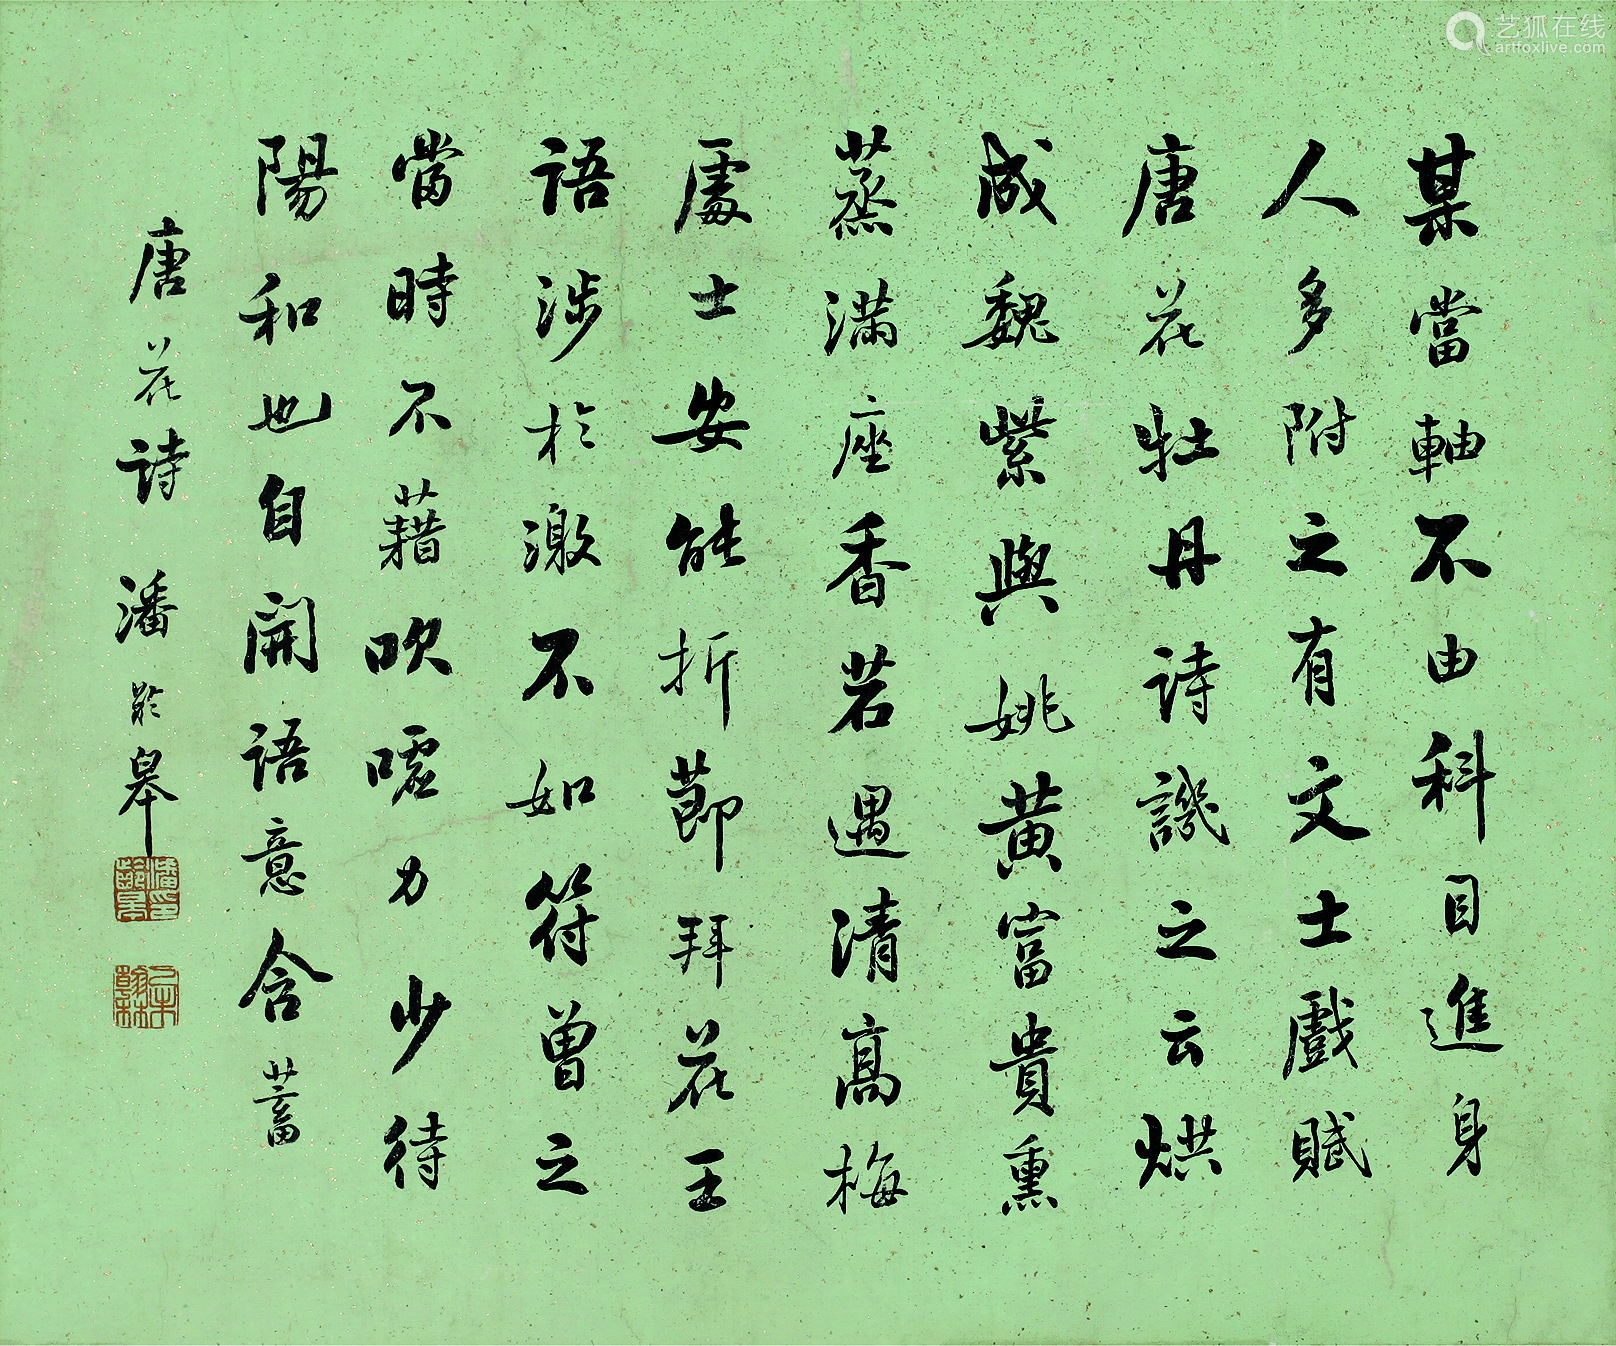 某當軸不由科目進身
人多附之有文士戲賦
唐花牡丹詩譏之云烘
成魏紫與姚黃富貴熏
蒸滿座香若遇清高梅
處士安能折節拜花王
語涉於激不如符曾之
當時不藉吹噓力少待
陽和也自開語意含蓄
唐花詩 潘齡皋
潘印
齡皋
乙未
翰林
艺狐在线
artfoxlive.com